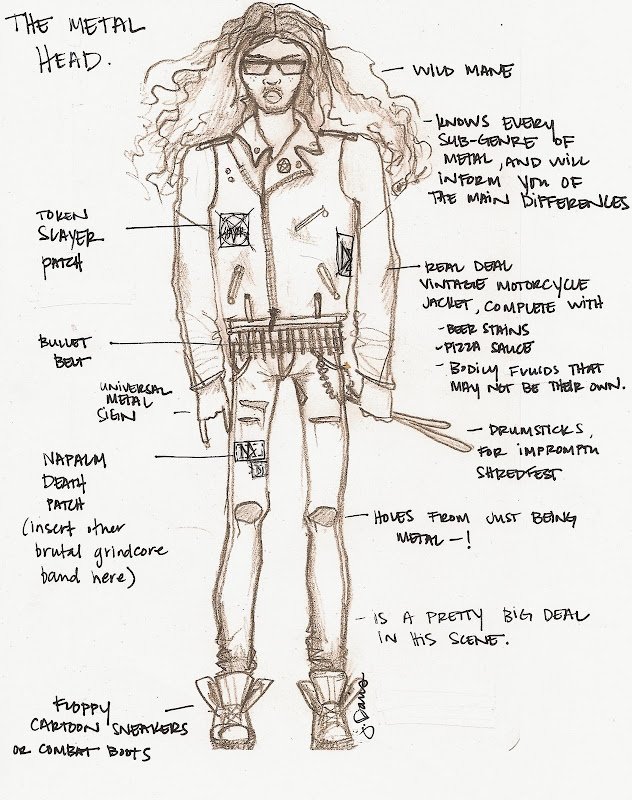 THE METAL
HEAD.
WILD MANE
KNOWS EVERY
SUB-GENRE OF
METAL, AND WILL
INFORM YOU OF
THE MAIN DIFFERENCES
TOKEN
SLAYER
PATCH
SLAYER
REAL DEAL
VINTAGE MOTORCYCLE
JACKET, COMPLETE WITH
- BEER STAINS
- PIZZA SAUCE
- BODILY FLUIDS THAT
MAY NOT BE THEIR OWN.
BULLET
BELT
UNIVERSAL
METAL
SIGN
DRUMSTICKS,
FOR IMPROMPTU
SHREDFEST
NAPALM
DEATH
PATCH
(insert other
brutal grindcore
band here)
HOLES FROM JUST BEING
METAL -!
IS A PRETTY BIG DEAL
IN HIS SCENE.
FLOPPY
CARTOON SNEAKERS
OR COMBAT BOOTS